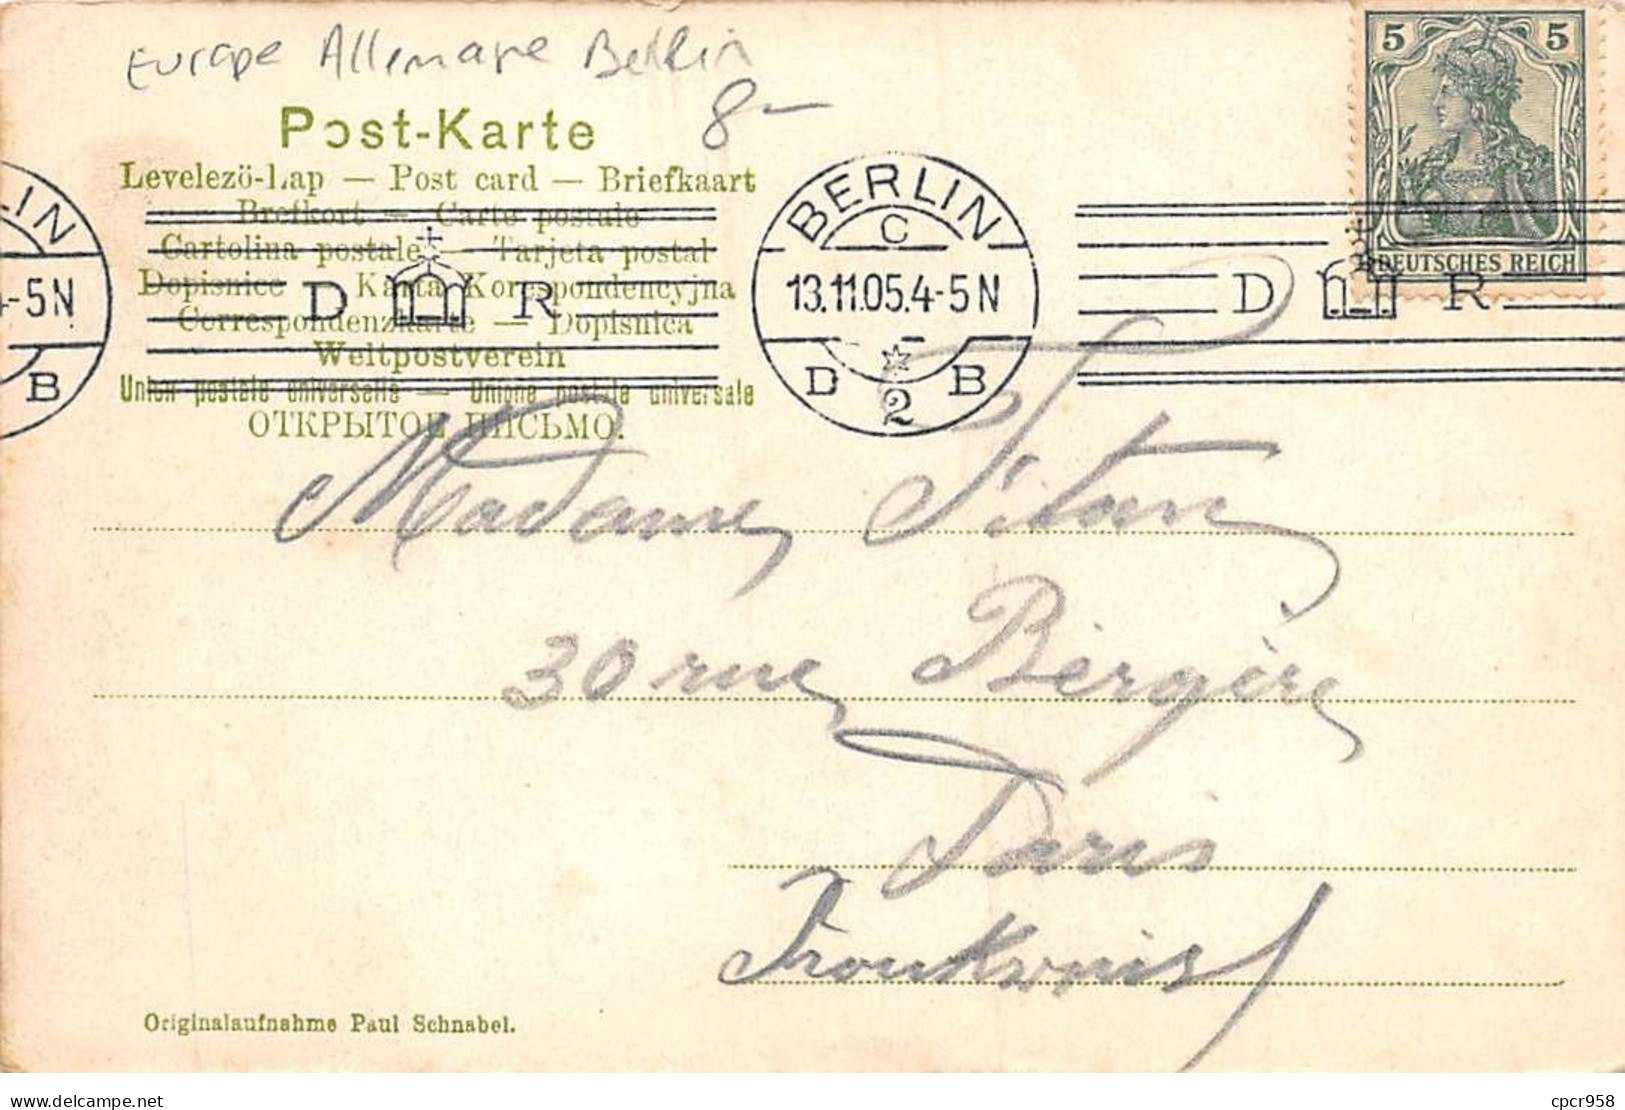 Europe Allemagne Berlin
8-
Post-Karte
Levelezö-Lap — Post card — Briefkaart
Brefkort — Carte postale
Cartolina postale — Tarjeta postal
Dopisnice — Karta Korespondencyjna
Correspondenzkarte — Dopisnica
Weltpostverein
Union postale universelle — Unione postale universale
ОТКРЫТОЕ ПИСЬМО.
LIN
4-5N
B
D R
BERLIN
C
13.11.05.4-5N
D B
2
D R
5 5
DEUTSCHES REICH
Madame
30 rue Bergère
Paris
Originalaufnahme Paul Schnabel.
cpcr958